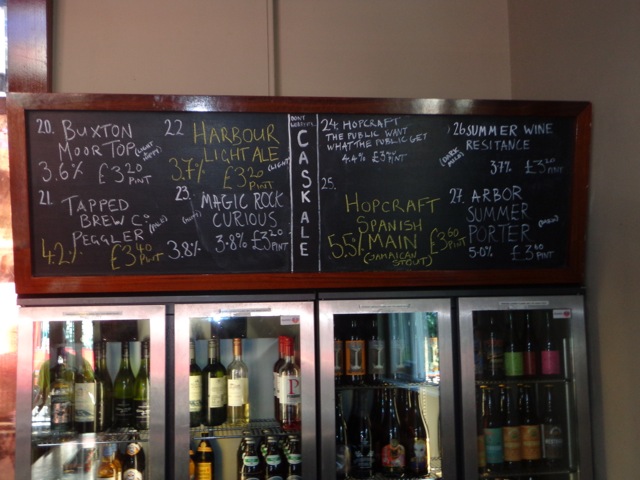 20. BUXTON
MOOR TOP (LIGHT
3.6% £3.20
PINT
21. TAPPED
BREW Co.
PEGGLER (MILD)
4.2% £3.40
PINT
22 HARBOUR
LIGHT ALE
(LIGHT
3.7% £3.20
PINT
23. MAGIC ROCK
CURIOUS
3.8% 3.8% £3.20
PINT
CASK ALE
24. HOPCRAFT
THE PUBLIC WANT
WHAT THE PUBLIC GET
4.4% £3.40
PINT
25. HOPCRAFT
SPANISH
MAIN
5.5% £3.60
PINT
(JAMAICAN
STOUT)
26 SUMMER WINE
RESITANCE
(DARK
MILD)
3.7% £3.20
PINT
27. ARBOR
SUMMER
PORTER (DARK)
5.0% £3.60
PINT